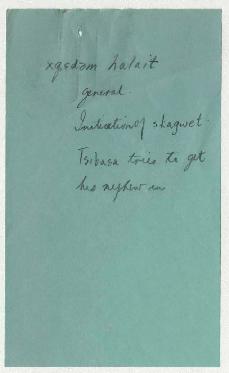 xgsdəm halait
general.
Initiation of skagwet.
Tsibasa tries to get
his nephew in